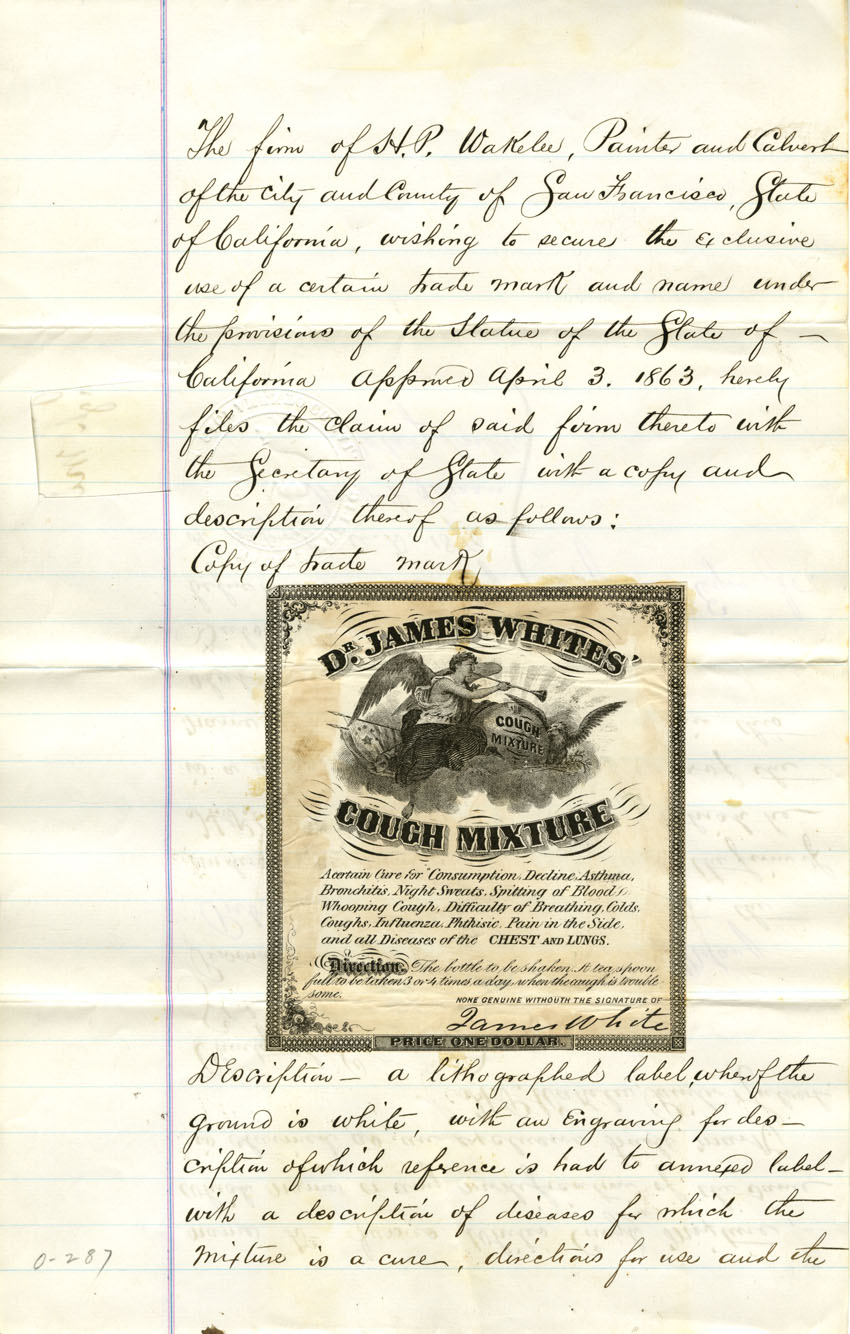 The firm of H.P. Wakelee, Painter and Calvert
of the City and County of San Francisco, State
of California, wishing to secure the exclusive
use of a certain trade mark and name under
the provisions of the Statue of the State of —
California approved April 3. 1863, hereby
files the claim of said firm thereto with
the Secretary of State with a copy and
description thereof as follows:
Copy of trade mark
DR. JAMES WHITES'
COUGH
MIXTURE
COUGH MIXTURE
A certain Cure for Consumption, Decline, Asthma,
Bronchitis, Night Sweats, Spitting of Blood,
Whooping Cough, Difficulty of Breathing, Colds,
Coughs, Influenza, Phthisic, Pain in the Side,
and all Diseases of the CHEST AND LUNGS.
Direction. The bottle to be shaken. A tea spoon
full to be taken 3 or 4 times a day, when the cough is trouble
some.
NONE GENUINE WITHOUTH THE SIGNATURE OF
James White
PRICE ONE DOLLAR.
Description — a lithographed label, wherof the
ground is white, with an Engraving for des—
cription of which reference is had to annexed label—
with a description of diseases for which the
mixture is a cure, directions for use and the
0-287